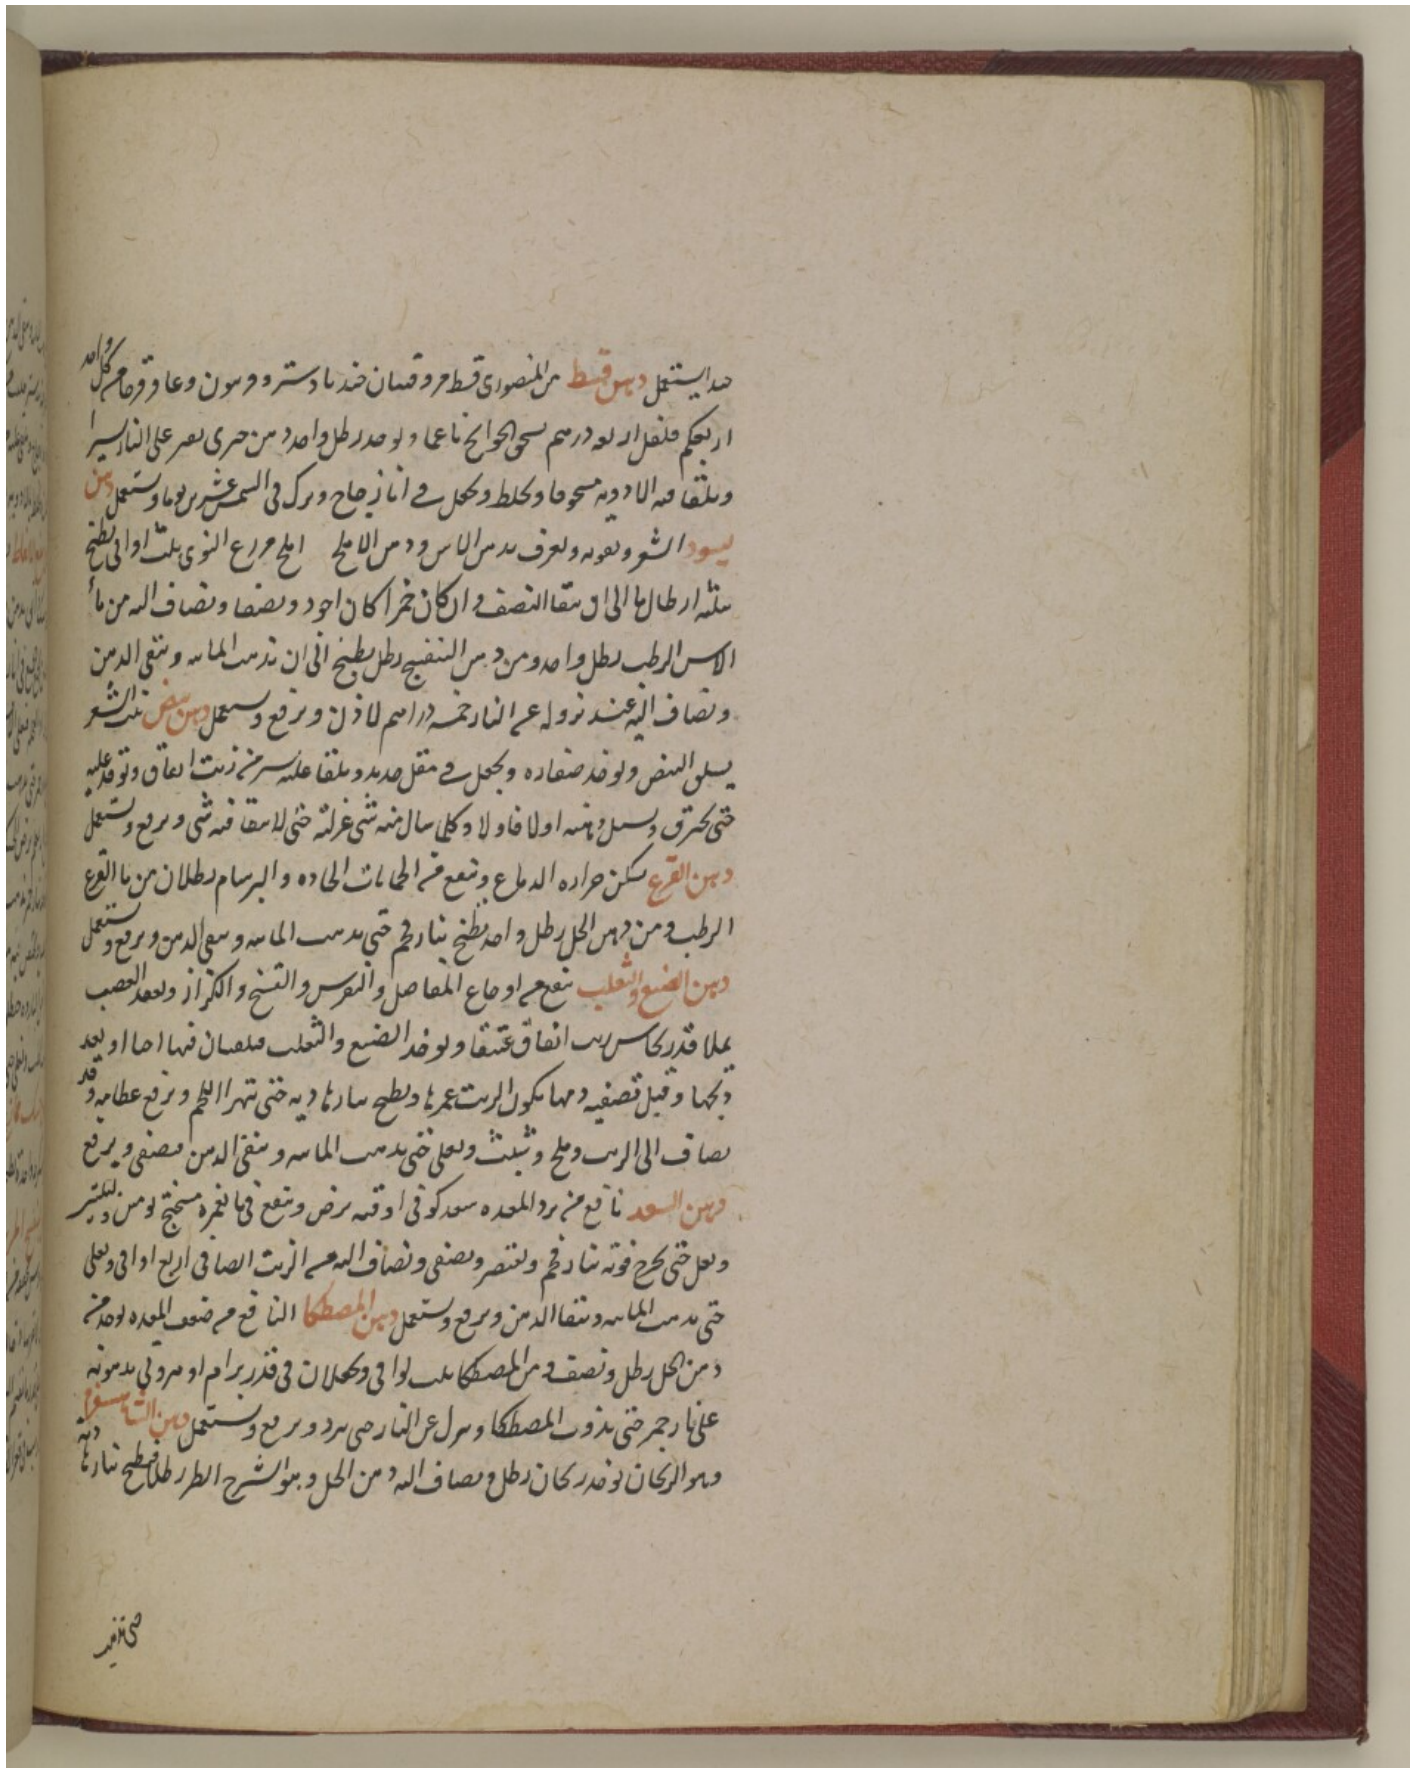 جدا يستعمل دهن قسط من المنصوري قسط مر وقيتان جندبادستر وفربيون وعاقرقرحا من كل واحد
اربعة دراهم تسحق الحوائج ناعما ويوخذ رطل واحد دهن على النار يسيرا
ويلقا فيه الادويه مسحوقا ويخلط ويجعل في انا زجاج ويترك في الشمس عشرين يوما ويستعمل دهن
يسود الشعر ويقويه ويعرف بدهن الاس ودهن الاملج املج منزوع النوى ثلث اواقي يطبخ
بثلثه ارطال ما الى ان يبقا النصف وان كان خمرا كان اجود ويصفا ويضاف اليه من ماء
الاس الرطب رطل واحد ومن دهن البنفسج رطل يطبخ الى ان تذهب المائيه ويبقى الدهن
ويضاف اليه عند نزوله عن النار خمسه دراهم لاذن ويرفع ويستعمل دهن بيض ينبت الشعر
يسلق البيض ويوخذ صفاره ويجعل في مقلى حديد ويلقا عليه يسير من زيت انفاق وتوقد عليه
حتى يحترق ويسيل دهنه اولا فاولا وكلما سال منه شي عزلته حتى لا يبقا فيه شي ويرفع ويستعمل
دهن القرع يسكن حراره الدماغ وينفع من الحميات الحاده والبرسام رطلان من ما القرع
الرطب ومن دهن الحل رطل واحد يطبخ بنار فحم حتى يذهب المائيه ويبقى الدهن ويرفع ويستعمل
دهن الضبع والثعلب ينفع من اوجاع المفاصل والنقرس والتشنج والكزاز وتعقد العصب
يملا قدر نحاس زيت انفاق عتيقا ويوخذ الضبع والثعلب فيلقيان فيها احيا او بعد
ذبحهما وقبل تصفيه دمهما يكون الزيت غمرها ويطبخ بنار هاديه حتى يتهرا اللحم وترفع عظامه وقد
يضاف الى الزيت وملح وشبث ويغلى حتى يذهب المائيه ويبقى الدهن فيصفى ويرفع
دهن السعد نافع من برد المعده سعد كوفي اوقيه يرض وينقع في ما يغمره مسخنج يومين وليلتين
ويغلى حتى يخرج قوته بنار فحم ويعتصر ويصفى ويضاف اليه من الزيت الصافي اربع اواقي ويغلى
حتى يذهب المائيه ويبقا الدهن ويرفع ويستعمل دهن المصطكا النافع من ضعف المعده يوخذ من
دهن الحل رطل ونصف ومن المصطكا ثلث اواقي ويجعلان في قدر برام او يذوبه
على نار جمر حتى يذوب المصطكا وينزل عن النار حتى يبرد ويرفع ويستعمل دهن الشاهسفرم
وهو الريحان يوخذ ريحان رطل ويضاف اليه دهن الحل وهو الشيرج الطري رطل فيطبخ بنار هاديه
حتى تذهب